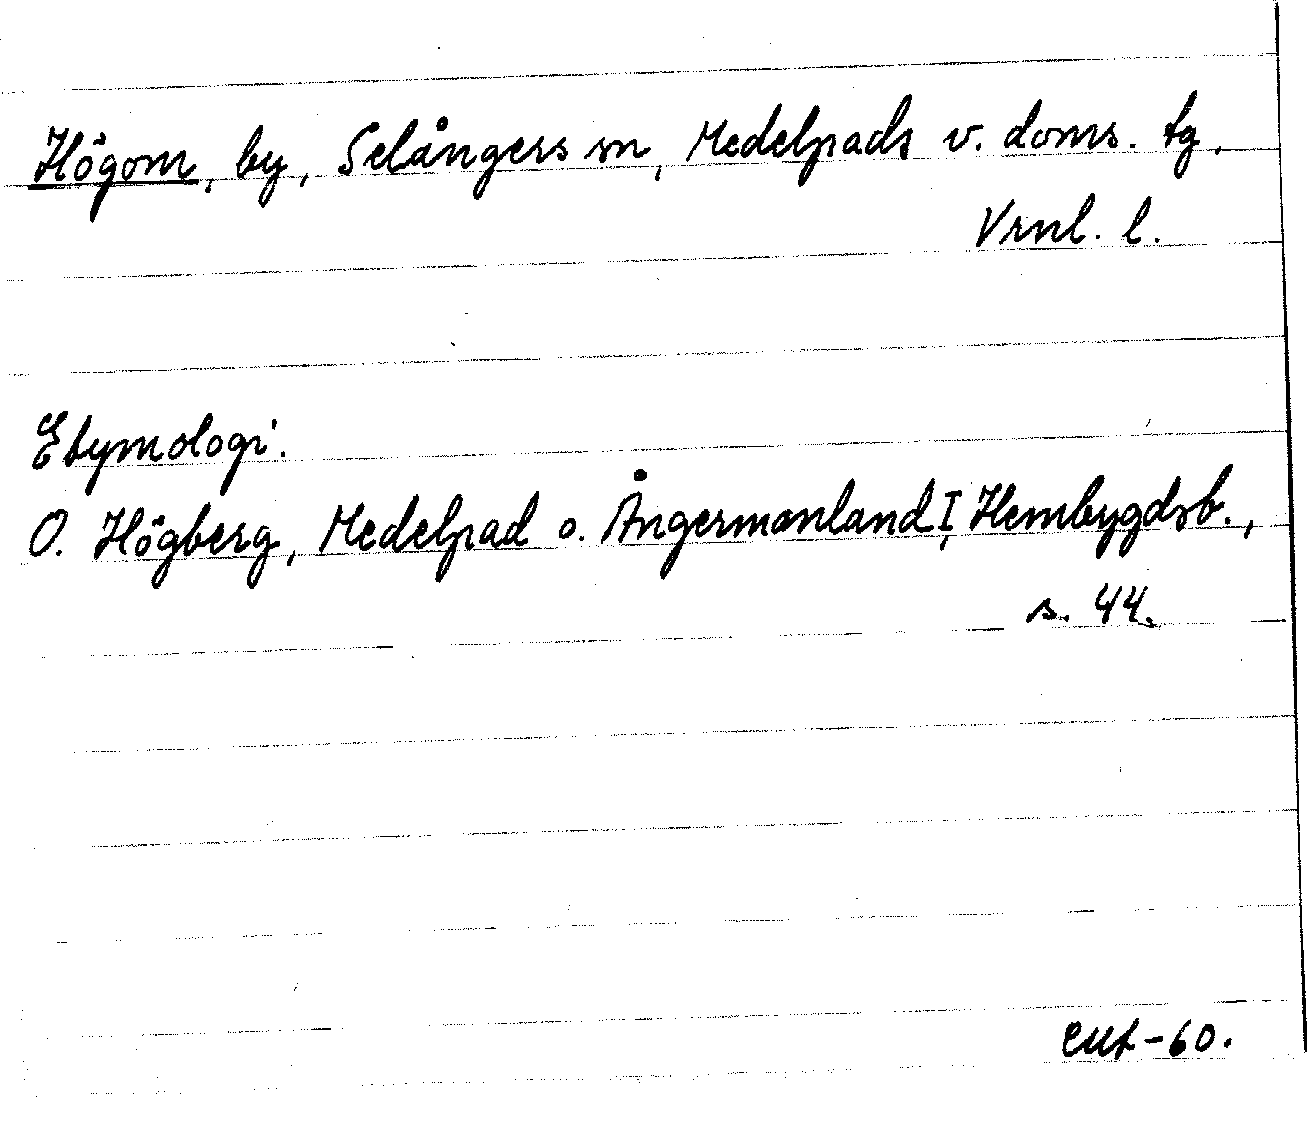 Högom, by, Selångers sn, Medelpads v. doms. tg,
Vrnl. l.
Etymologi.
O. Högberg, Medelpad o. Ångermanland I, Hembygdsb.,
s. 44.
-60.